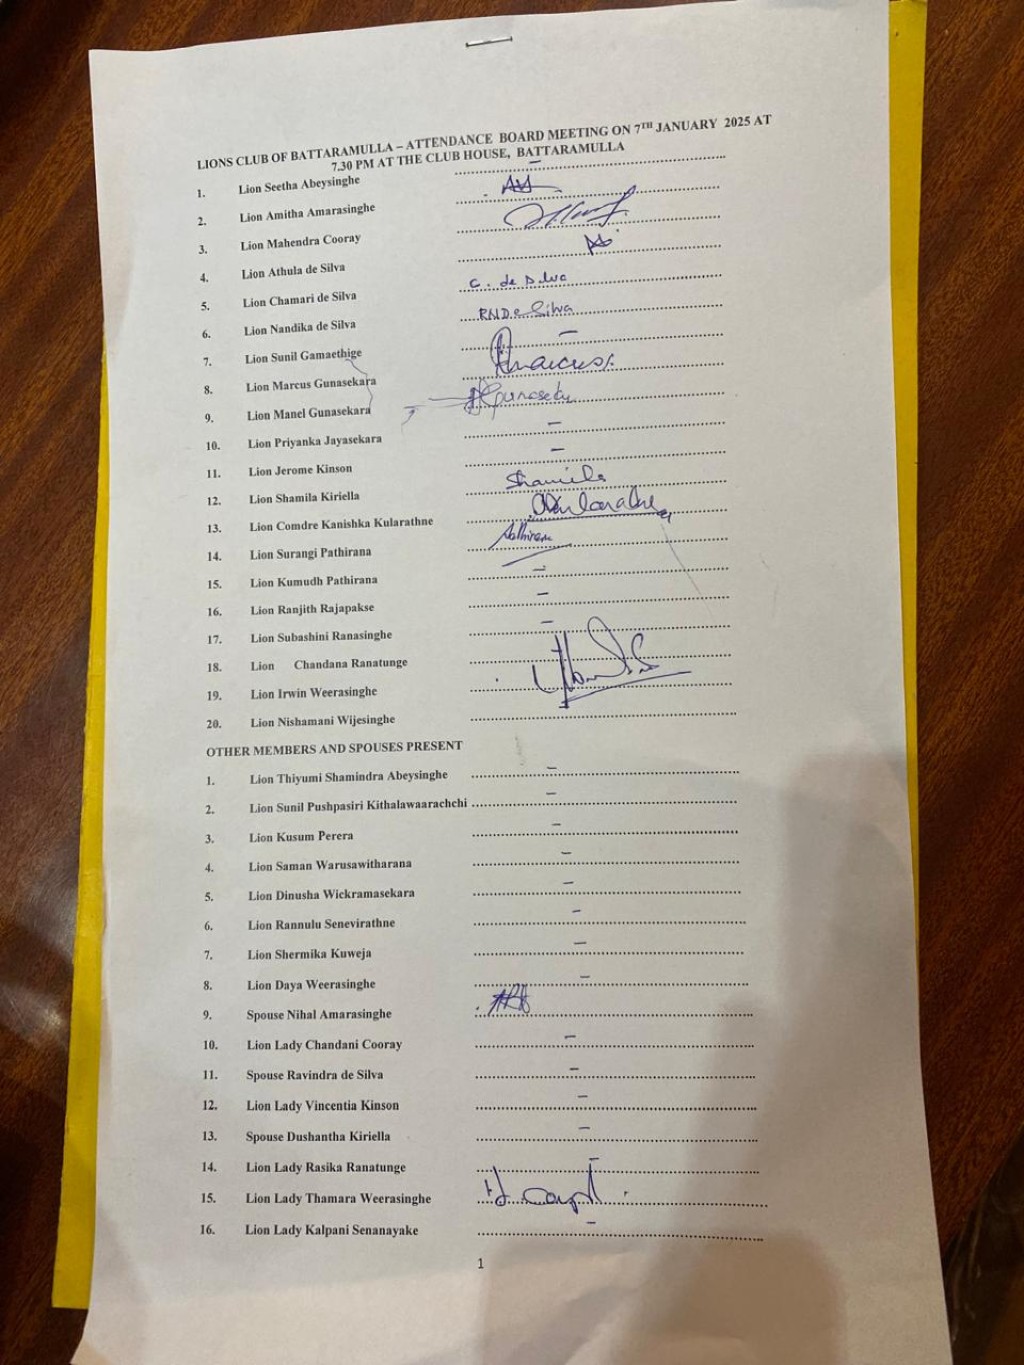 LIONS CLUB OF BATTARAMULLA – ATTENDANCE BOARD MEETING ON 7TH JANUARY 2025 AT
7.30 PM AT THE CLUB HOUSE, BATTARAMULLA
1. Lion Seetha Abeysinghe –
2. Lion Amitha Amarasinghe
3. Lion Mahendra Cooray
4. Lion Athula de Silva
5. Lion Chamari de Silva C. de Silva
6. Lion Nandika de Silva RNDe Silva
7. Lion Sunil Gamaethige –
8. Lion Marcus Gunasekara
9. Lion Manel Gunasekara
10. Lion Priyanka Jayasekara –
11. Lion Jerome Kinson –
12. Lion Shamila Kiriella Shamila
13. Lion Comdre Kanishka Kularathne
14. Lion Surangi Pathirana
15. Lion Kumudh Pathirana –
16. Lion Ranjith Rajapakse –
17. Lion Subashini Ranasinghe –
18. Lion Chandana Ranatunge
19. Lion Irwin Weerasinghe
20. Lion Nishamani Wijesinghe
OTHER MEMBERS AND SPOUSES PRESENT
1. Lion Thiyumi Shamindra Abeysinghe –
2. Lion Sunil Pushpasiri Kithalawaarachchi –
3. Lion Kusum Perera –
4. Lion Saman Warusawitharana –
5. Lion Dinusha Wickramasekara –
6. Lion Rannulu Senevirathne –
7. Lion Shermika Kuweja –
8. Lion Daya Weerasinghe –
9. Spouse Nihal Amarasinghe
10. Lion Lady Chandani Cooray –
11. Spouse Ravindra de Silva –
12. Lion Lady Vincentia Kinson –
13. Spouse Dushantha Kiriella –
14. Lion Lady Rasika Ranatunge –
15. Lion Lady Thamara Weerasinghe
16. Lion Lady Kalpani Senanayake –
1